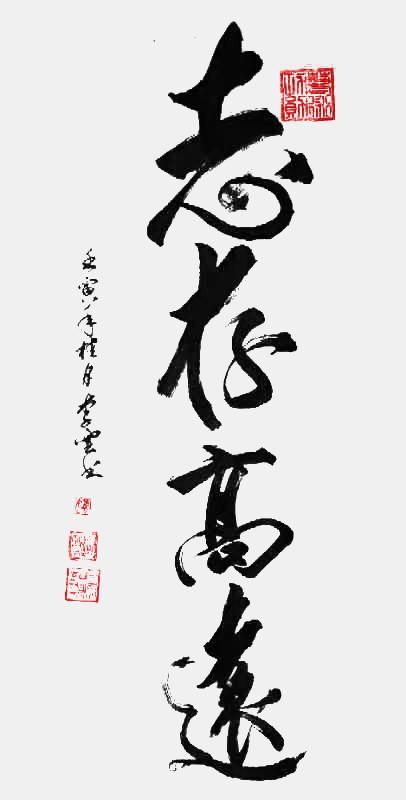 志存高遠
壬寅年桂月李雲书